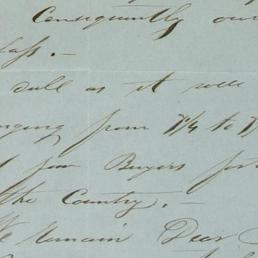 Consequently our
dull as it well
from 7¼ to 7
few Buyers for
the Country. —
Remain Dear